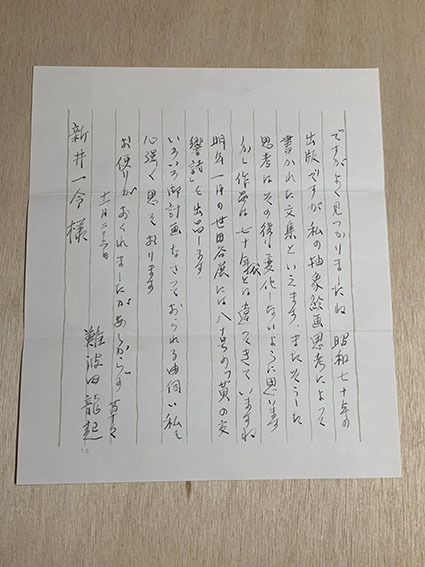 ですがよく見つかりましたね 昭和七十年の
出版ですが私の抽象絵画思考によって
書かれた文集といえます、またそうした
思考はその後変化しないように思います
しかし作品は七十年とは違ってきていますね
明年一月の世田谷展には八十号の「黄の交
響詩」を出品します、
いろいろ御計画なさっておられる由伺い私も
心強く思っております
お便りがおくれましたがあしからず 草々
十一月二十六日
難波田龍起
新井一令様